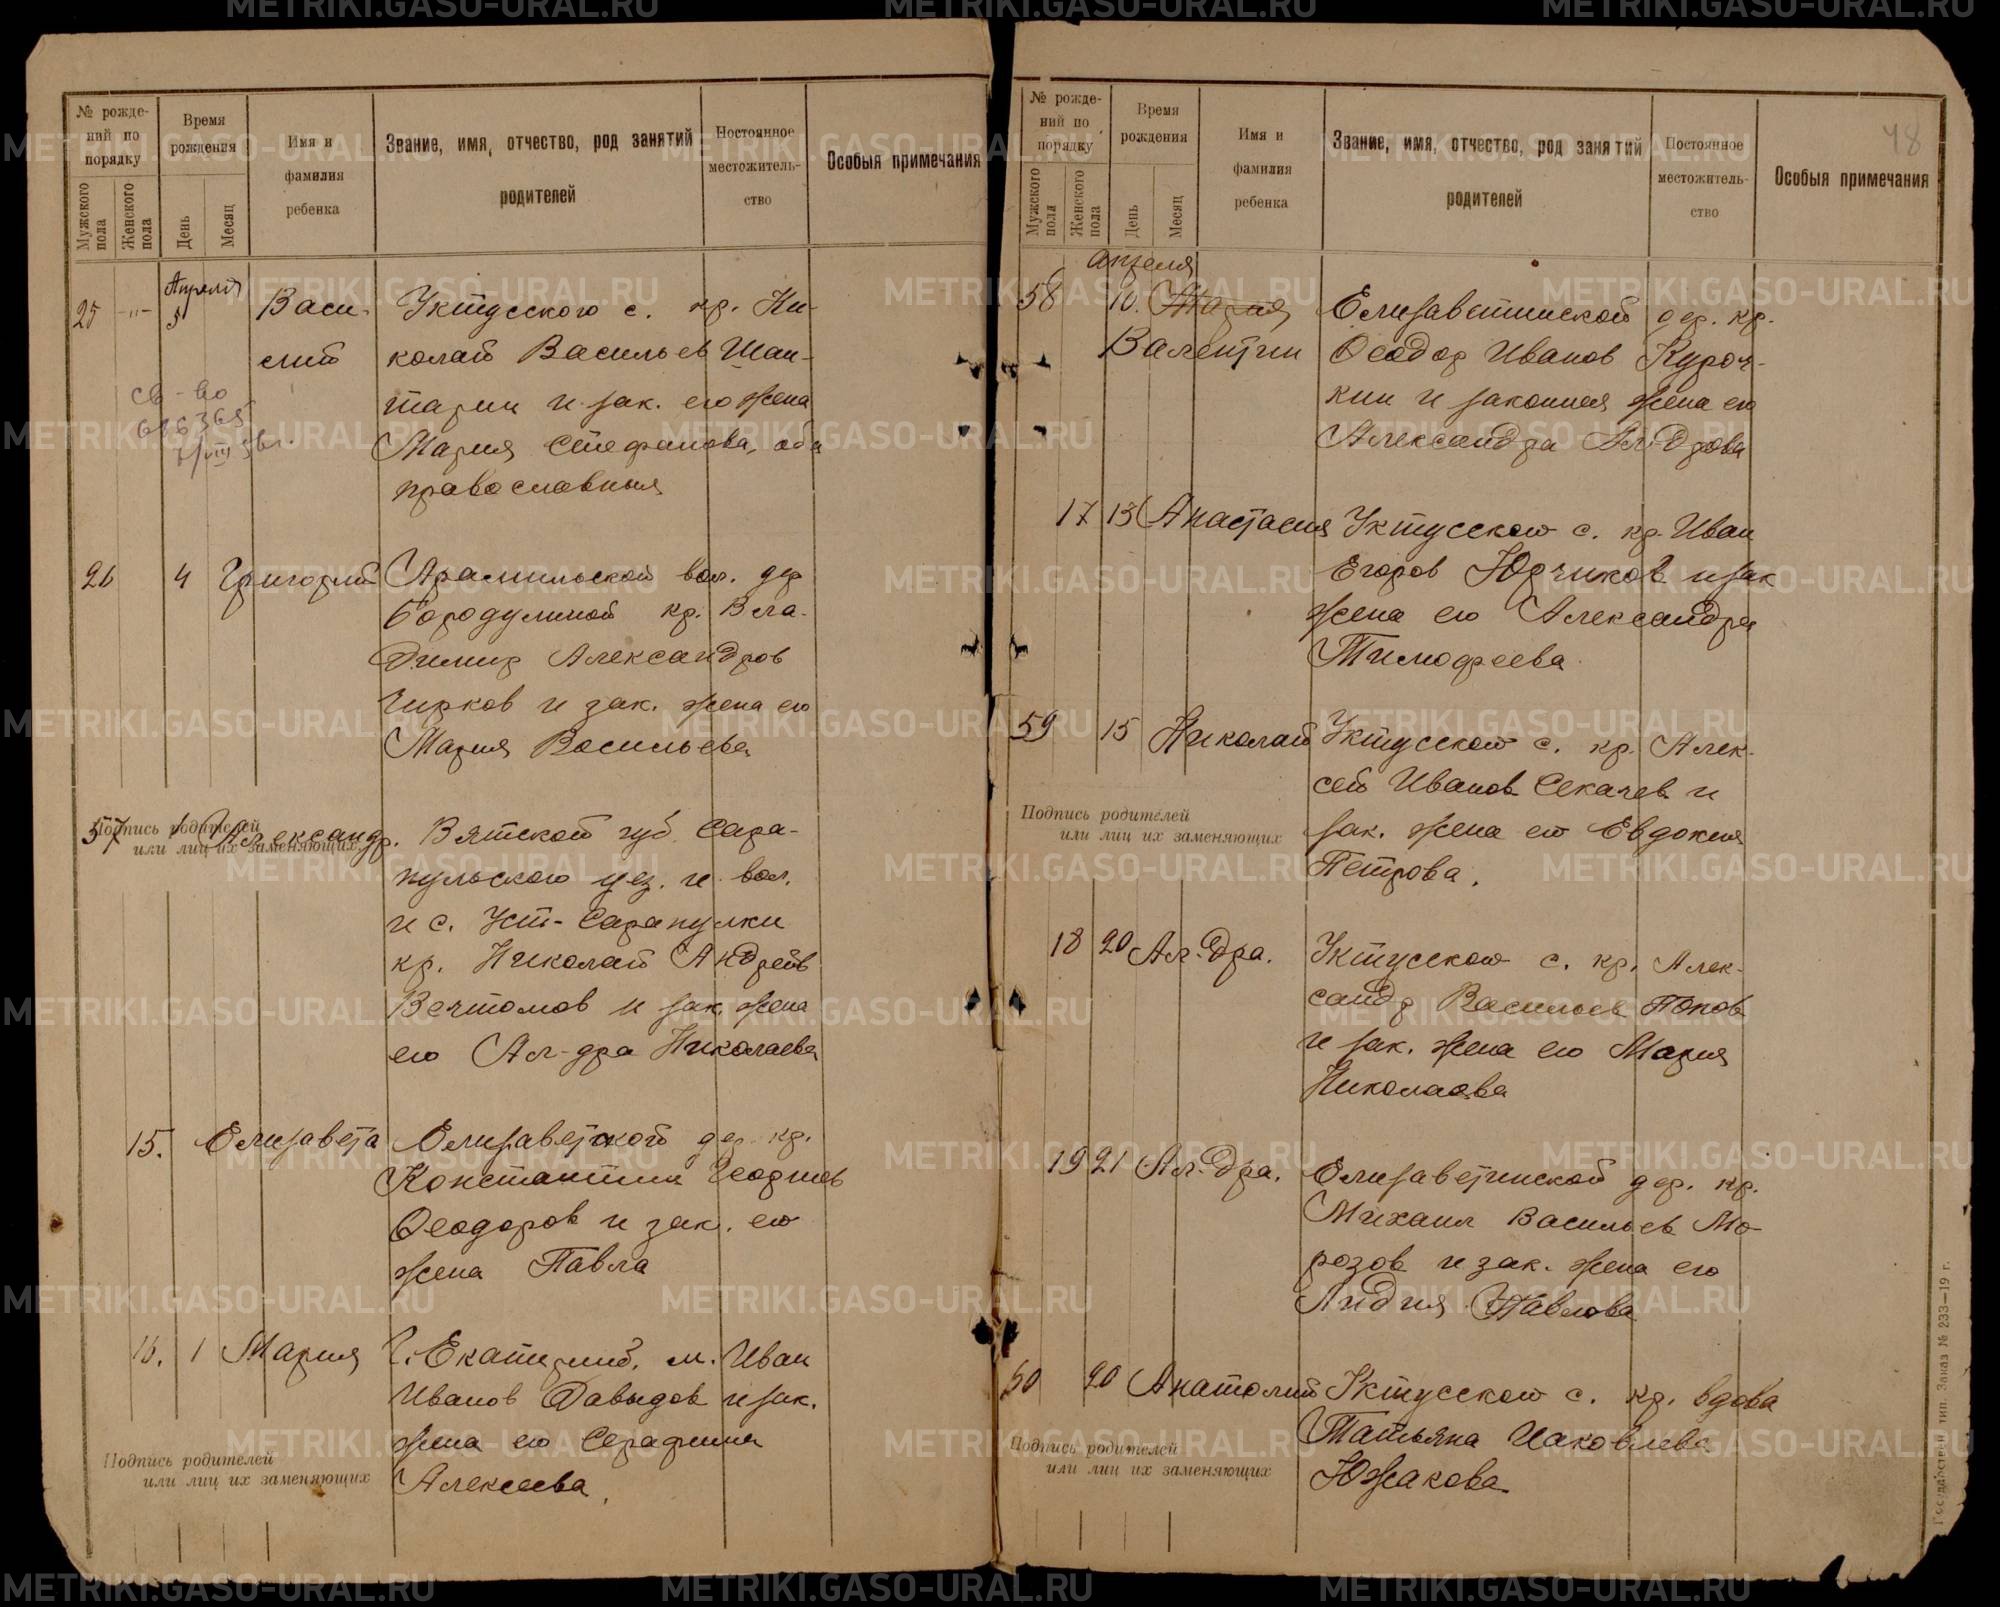 № рожде-
ний по
порядку
Мужского
пола
Женского
пола
Время
рождения
День
Месяц
Имя и
фамилия
ребенка
Звание, имя, отчество, род занятий
родителей
Постоянное
местожитель-
ство
Особыя примечания
Апреля
25 -"- 5 Васи- Уктусского с. кр. Ни-
лий колай Васильев Шан-
тарин и зак. его жена
Мария Стефанова, оба
православныя
св-во
26 4 Григорий Арамильской вол. дер
Бородулиной кр. Вла-
димир Александров
Чирков и зак. жена его
Мария Васильева
57 Александр. Вятской губ. Сара-
Подпись родителей
или лиц их заменяющих
пульского уез. и вол.
и с. Уст-Сарапулки
кр. Николай Андреев
Вечтомов и зак. жена
его Ал-дра Николаева
15. Елисавета Елисаветской дер. кр.
Константин Георгиев
Феодоров и зак. его
жена Павла
16. 1 Мария Г. Екатеринб. м. Иван
Иванов Давыдов и зак.
жена его Серафима
Алексеева
Подпись родителей
или лиц их заменяющих
48
№ рожде-
ний по
порядку
Мужского
пола
Женского
пола
Время
рождения
День
Месяц
Имя и
фамилия
ребенка
Звание, имя, отчество, род занятий
родителей
Постоянное
местожитель-
ство
Особыя примечания
апреля
58 10. Мария Елисаветинской дер. кр.
Валентин Феодор Иванов Куроч-
кин и законная жена его
Александра Ал-дрова
17 13 Анастасия Уктусского с. кр. Иван
Егоров Юрчиков и зак
жена его Александра
Тимофеева
59 15 Николай Уктусского с. кр. Алек-
сей Иванов Секачев и
Подпись родителей
или лиц их заменяющих
зак. жена его Евдокия
Петрова.
18 20 Ал-дра. Уктусского с. кр. Алек-
сандр Васильев Попов
и зак. жена его Мария
Николаева
19 21 Ал-дра. Елисаветинской дер. кр.
Михаил Васильев Мо-
розов и зак. жена его
Лидия Павлова
20 Анатолий Уктусского с. кр. вдова
Татьяна Иаковлева
Южакова
Подпись родителей
или лиц их заменяющих
Государствен. тип. Заказ № 233—19 г.
METRIKI.GASO-URAL.RU